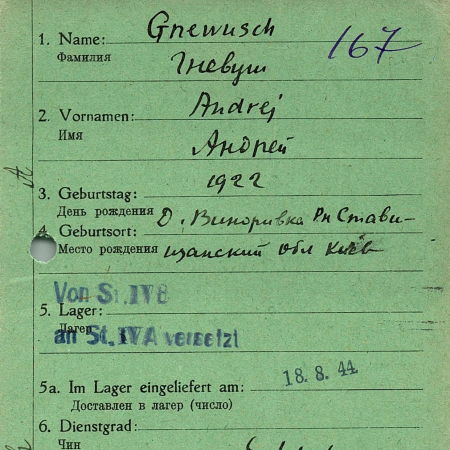 Gnewusch
1. Name:
Фамилия
Гневуш
167
Andrej
2. Vornamen:
Имя
Андрей
1922
3. Geburtstag:
День рождения
Д. Виноривка Рн Стави-
4. Geburtsort:
Место рождения
щанский обл Киев
Von St. IV B
5. Lager:
Лагер
an St. IV A versetzt
18. 8. 44
5a. Im Lager eingeliefert am:
Доставлен в лагер (число)
6. Dienstgrad:
Чин